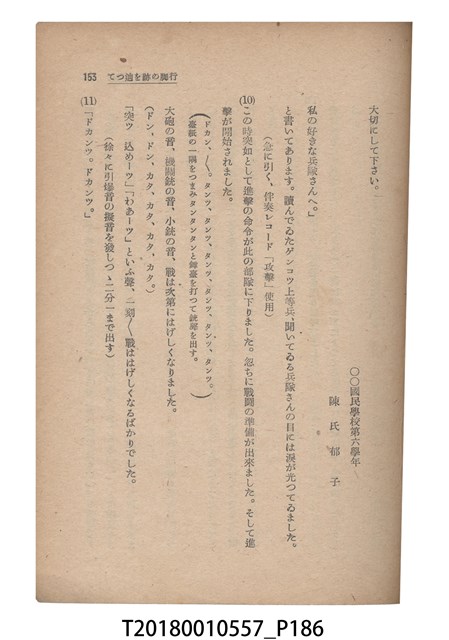 153　てつ追を跡の脚行
大切にして下さい。
〇〇國民學校第六學年
陳氏郁子
私の好きな兵隊さんへ。」
と書いてあります。讀んでゐたゲンコツ上等兵、聞いてゐる兵隊さんの目には淚が光つてゐました。
（急に引く、伴奏レコード「攻擊」使用）
(10) この時突如として進擊の命令が此の部隊に下りました。忽ちに戰鬪の準備が出來ました。そして進
擊が開始されました。
（ドカン、〳〵。タンツ、タンツ、タンツ、タンツ、タンツ。
臺紙の一隅をつまみタンタンタンと舞臺を打つて銃聲を出す。）
大砲の音、機關銃の音、小銃の音、戰は次第にはげしくなりました。
（ドン、ドン、カタ、カタ、カタ、カタ。）
「突ツ　込めーツ」「わあーツ」といふ聲、一刻〳〵戰ははげしくなるばかりでした。
（徐々に引爆音の擬音を發しつゝ二分一まで出す）
(11) 「ドカンツ。ドカンツ。」
T20180010557_P186